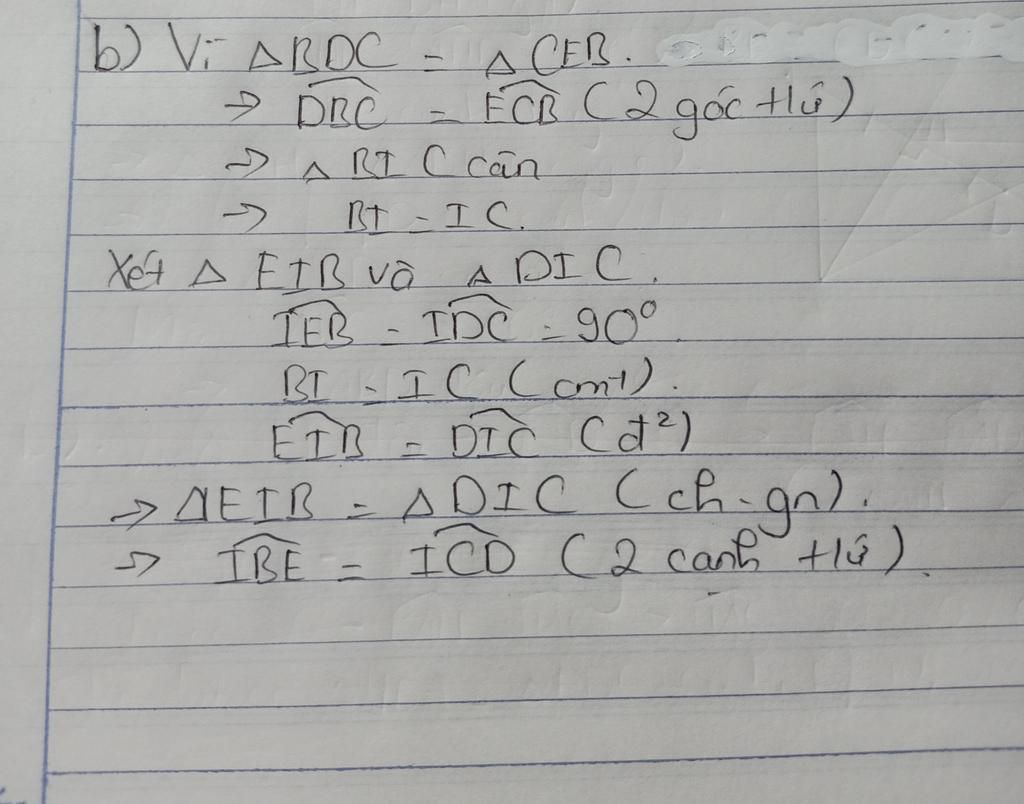 b) Vì △BDC = △CEB.
→ \widehat{DBC} = \widehat{ECB} (2 góc t/ứ)
→ △ BIC cân
→ BI = IC.
Xét △ EIB và △ DIC.
\widehat{IEB} = \widehat{IDC} = 90°.
BI = IC (cmt).
\widehat{EIB} = \widehat{DIC} (đ²)
→ △EIB = △DIC (ch-gn).
→ \widehat{IBE} = \widehat{ICD} (2 cạnh t/ứ).